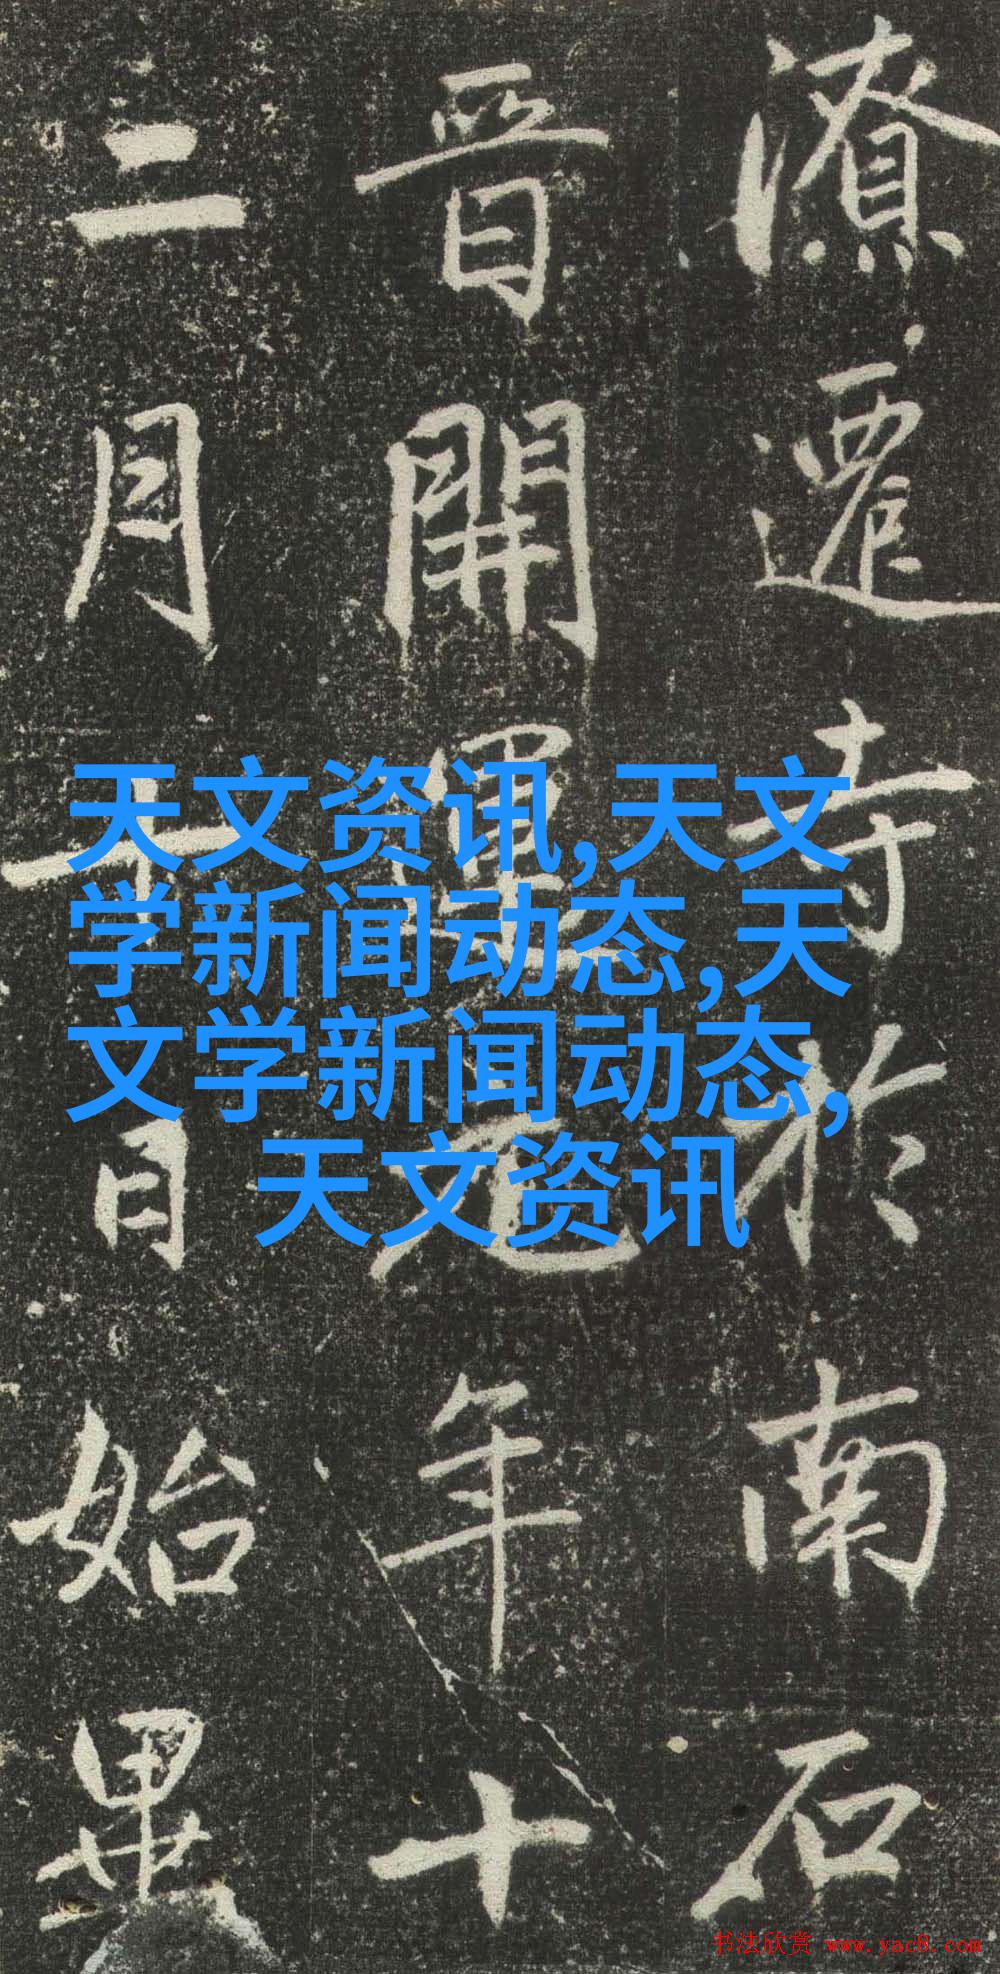 潦遷寺於南石
晉開運元年十
二月十日始畢
天文资讯,天文
学新闻动态,天
文学新闻动态,
天文资讯
书法欣赏 www.yac8.com